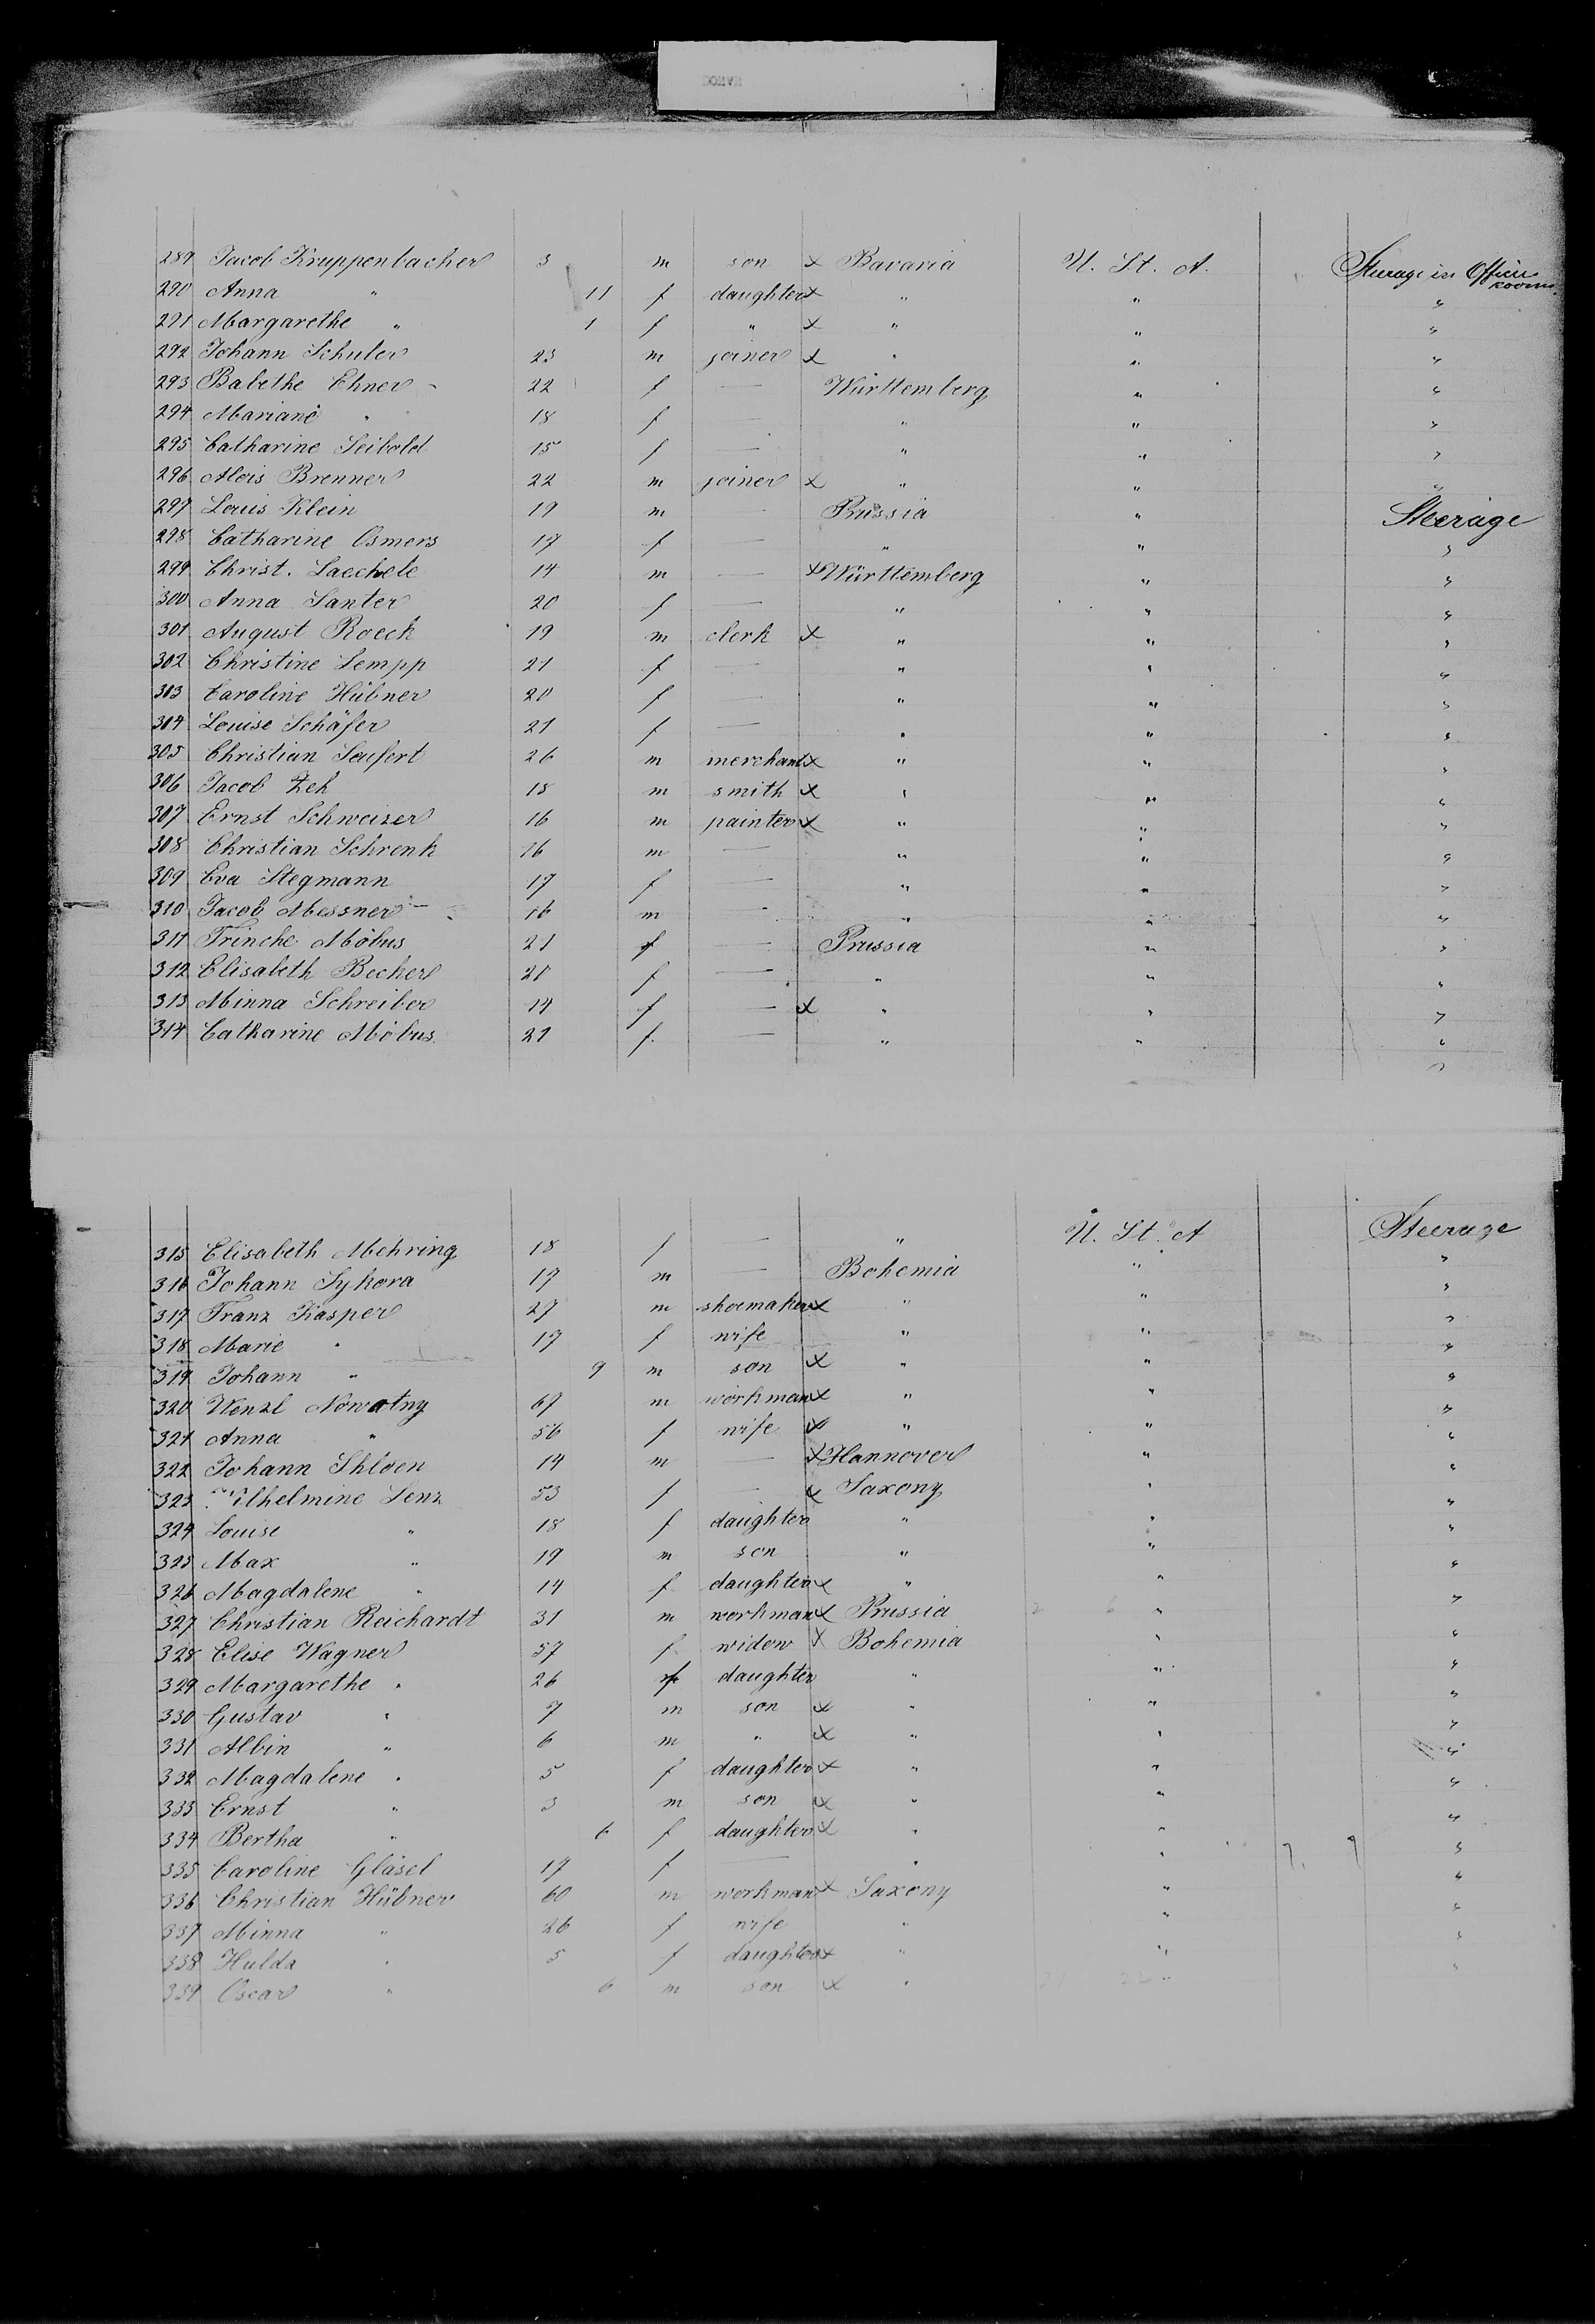 289 Jacob Kruppenbacher 3 m son x Bavaria U. St. A. Steerage in Officir rooms
290 Anna " 11 f daughter x " " "
291 Margarethe " 1 f " x " " "
292 Johann Schuler 23 m joiner x " " "
293 Babethe Ehner 22 f — Württemberg " "
294 Mariane " 18 f — " " "
295 Catharine Seibold 15 f — " " "
296 Alois Brenner 22 m joiner x " " "
297 Louis Klein 19 m — Prussia " Steerage
298 Catharine Osmers 17 f — " " "
299 Christ. Laechele 14 m — x Württemberg " "
300 Anna Santer 20 f — " " "
301 August Roeck 19 m clerk x " " "
302 Christine Lempp 21 f — " " "
303 Caroline Hübner 20 f — " " "
304 Louise Schäfer 21 f — " " "
305 Christian Seufert 26 m merchant x " " "
306 Jacob Zeh 18 m smith x " " "
307 Ernst Schweizer 16 m painter x " " "
308 Christian Schrenk 16 m — " " "
309 Eva Stegmann 17 f — " " "
310 Jacob Messner 16 m — " " "
311 Trinche Möbus 21 f — Prussia " "
312 Elisabeth Becker 20 f — " " "
313 Minna Schreiber 14 f — x " " "
314 Catharine Möbus 21 f — " " "
315 Elisabeth Mehring 18 f — " U. St. A Steerage
316 Johann Sykora 19 m — Bohemia " "
317 Franz Kasper 27 m shoemaker x " " "
318 Marie " 19 f wife " " "
319 Johann " 9 m son x " " "
320 Wenzl Nowatny 67 m workman x " " "
321 Anna " 56 f wife x " " "
322 Johann Shloen 14 m — x Hannover " "
323 Wilhelmine Lenz 53 f — x Saxony " "
324 Louise " 18 f daughter " " "
325 Max " 19 m son " " "
326 Magdalene " 14 f daughter x " " "
327 Christian Reichardt 31 m workman x Prussia 2 6 " "
328 Elise Wagner 57 f widow x Bohemia " "
329 Margarethe " 26 f daughter " " "
330 Gustav " 7 m son x " " "
331 Albin " 6 m " x " " "
332 Magdalene " 5 f daughter x " " "
333 Ernst " 3 m son x " " "
334 Bertha " 6 f daughter x " " "
335 Caroline Gläsel 17 f — " " "
336 Christian Hübner 60 m workman x Saxony " "
337 Minna " 26 f wife " " "
338 Hulda " 5 f daughter x " " "
339 Oscar " 6 m son x " 21 22 " "